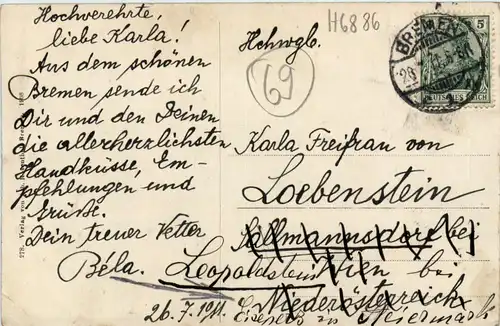 Hochverehrte,
liebe Karla!
Aus dem schönen
Bremen sende ich
Dir und den Deinen
die allerherzlichsten
Handküsse, Em-
pfehlungen und
Grüße.
Dein treuer Vetter
Béla.
26.7.1911.
H6886
69
Hchwglb.
Karla Freifrau von
Loebenstein
Sallmannsdorf bei
Leopoldstein Wien bei
Niederösterreich
Eisenerz in Steiermark
BREMEN
5
DEUTSCHES REICH
278. Verlag von